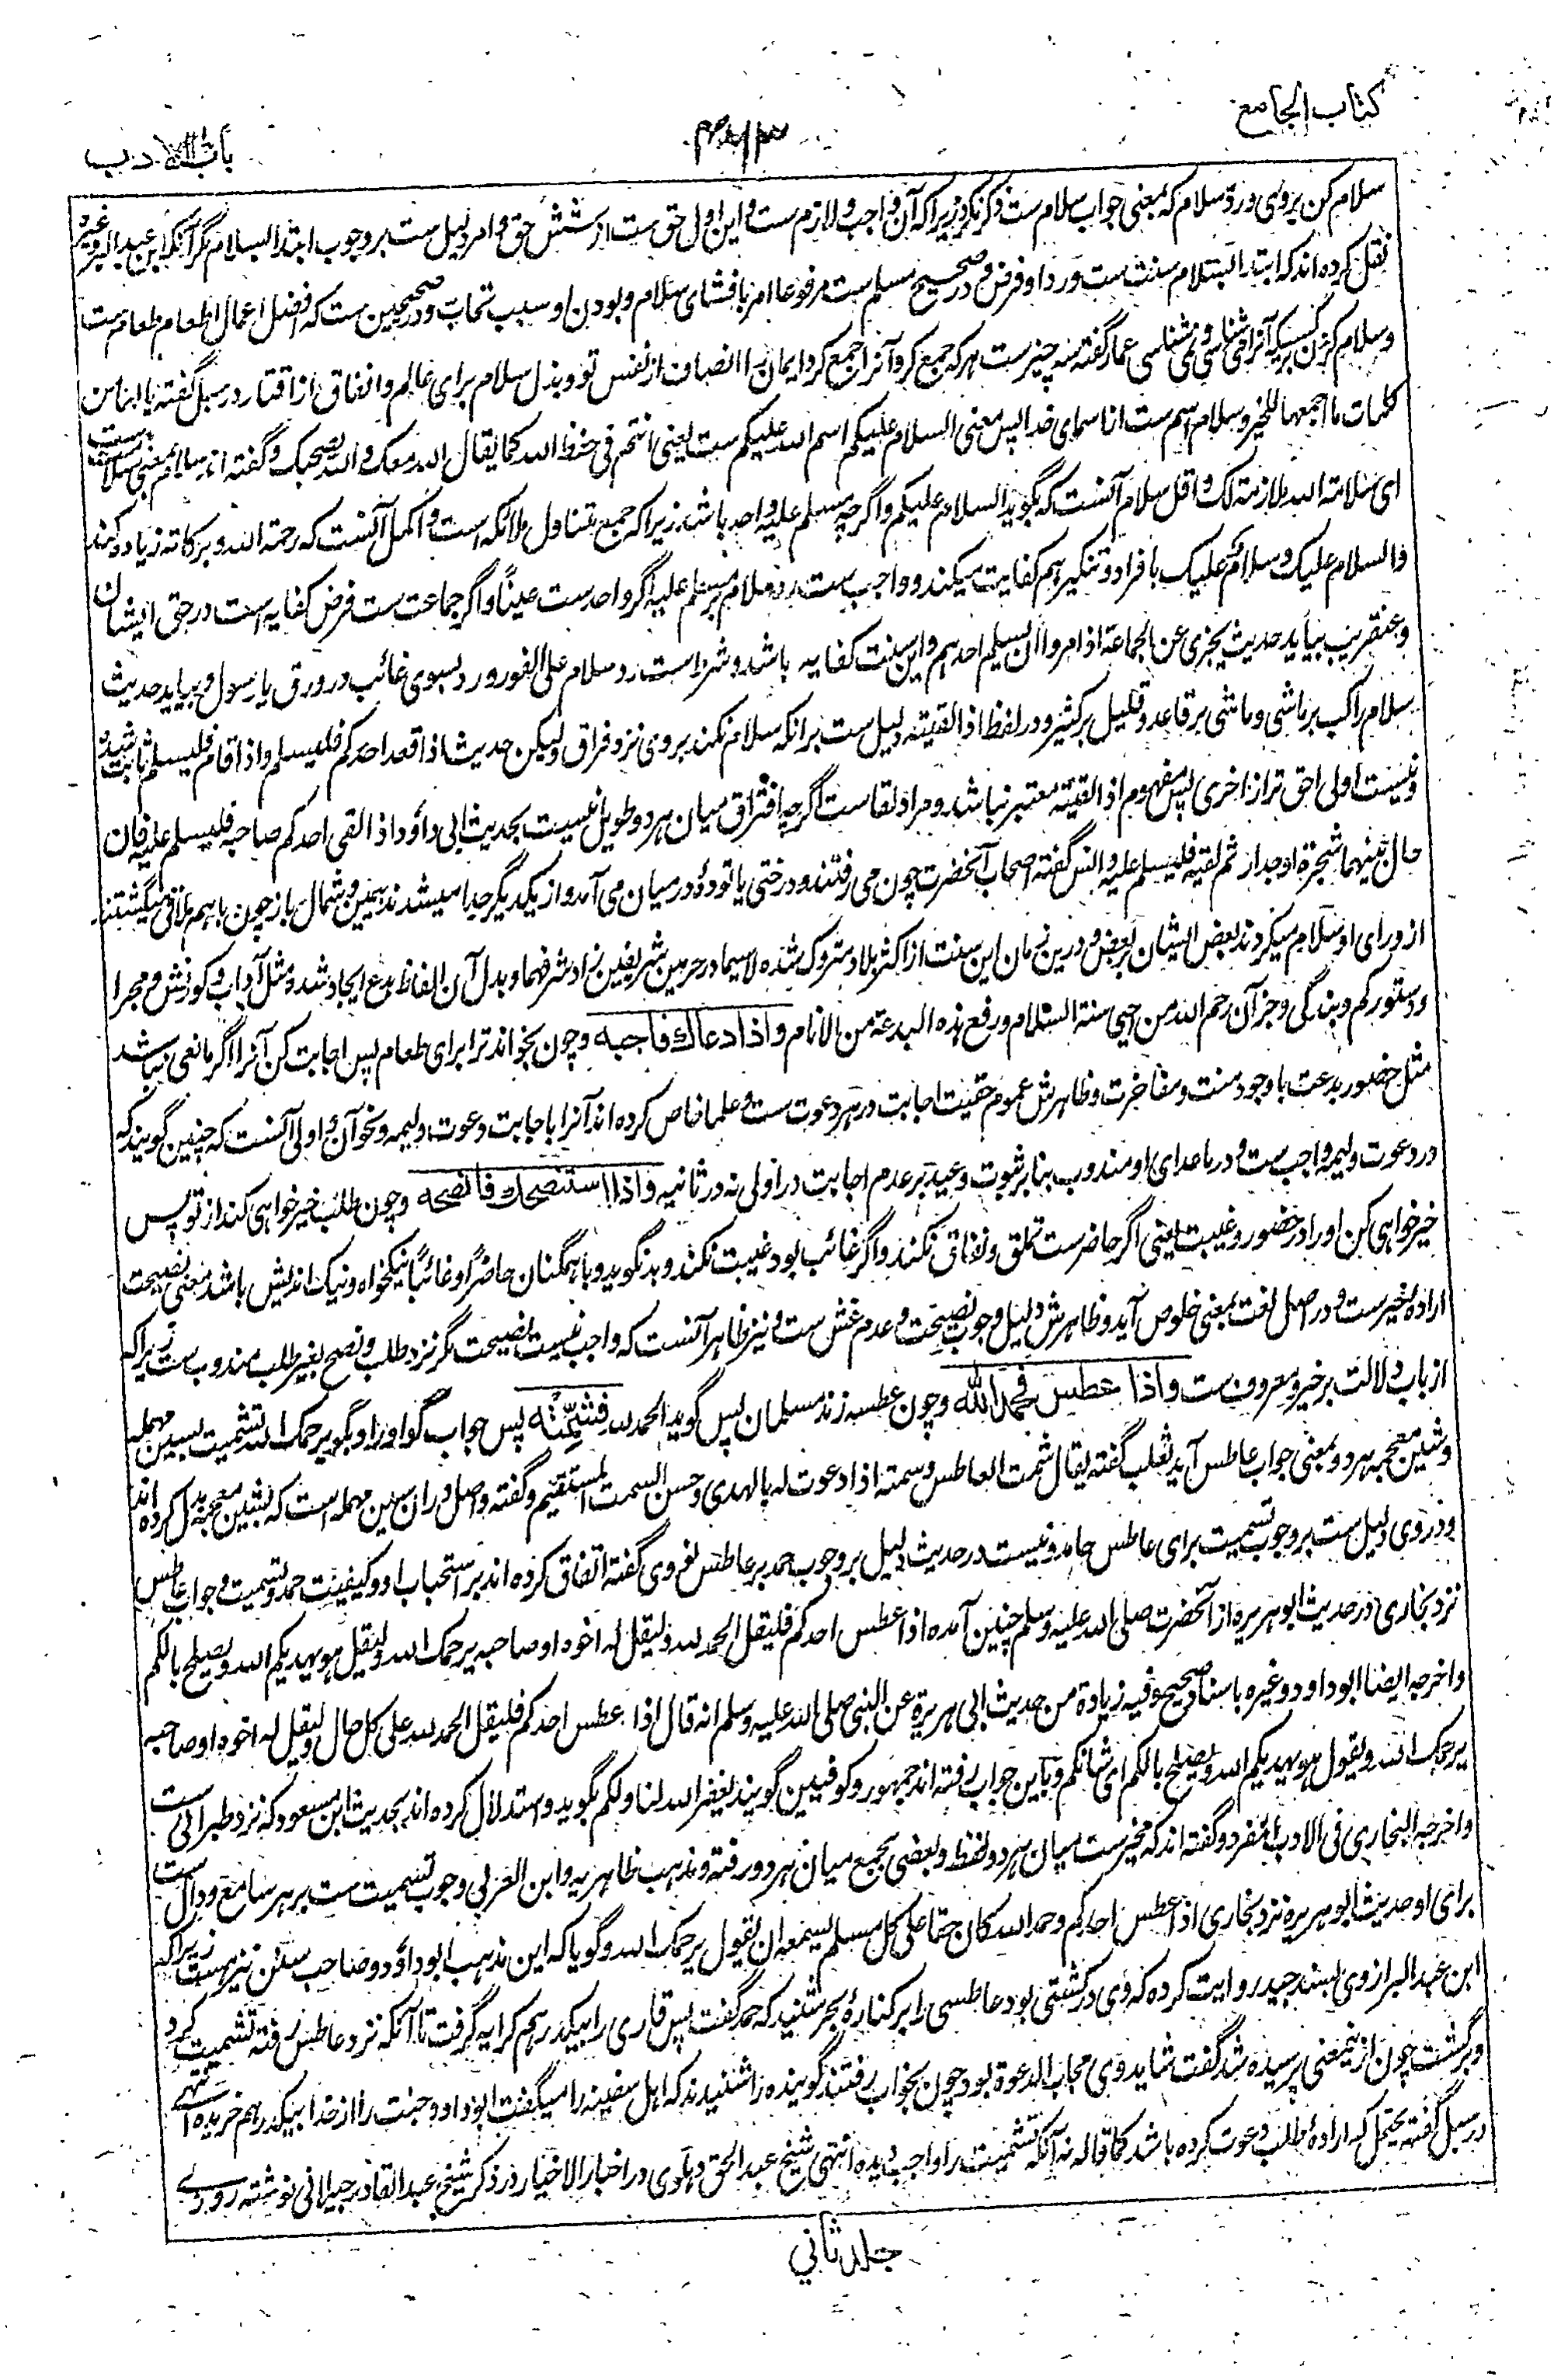 کتاب الجامع
باب الادب
سلام کن بروی ورد سلام که بمعنی جواب سلام ست ذکر نکرد زیرا که آن واجب و لازم ست و این اول حق ست از شش حق و امر دلیل ست بر وجوب ابتدا السلام مگر آنکه ابن عبد البر وغیره
نقل کرده اند که ابتدا السلام سنت ست ورد او فرض و در صحیح مسلم ست مرفوعا امر بافشای سلام و بودن او سبب تحاب و در صحیحین ست که افضل اعمال اطعام طعام ست
وسلام کردن بر کسیکه آنرا می شناسی و نمی شناسی عمار گفته سه چیز ست هر که جمع کرد آنرا جمع کرد ایمان را انصاف از نفس تو و بذل سلام برای عالم و انفاق از اقتار در سبل گفته یا لها من
کلمات ما اجمعها للخیر و سلام اسم ست از اسمای خدا پس معنی السلام علیکم اسم الله علیکم ست یعنی انتم فی حفظ الله کما یقال الله معک والله یصحبک و گفته اند سلام بمعنی سلامت ست
ای سلامة الله ملازمة لک و اقل سلام آنست که بگوید السلام علیکم و اگرچه مسلم علیه واحد باشد زیرا که جمع متناول ملائکه است و اکمل آنست که رحمة الله وبرکاته زیاده کند
والسلام علیک وسلام علیک بافراد و تنکیر هم کفایت میکند و واجب ست رد سلام بر مسلم علیه اگر واحد ست عینًا و اگر جماعت ست فرض کفایه است در حق ایشان
وعنقریب بیاید حدیث یجزی عن الجماعة اذا مروا ان یسلم احدهم و این سنت کفایه باشد و شرط است رد سلام علی الفور ورد بسوی غائب در ورق یا رسول و بیاید حدیث
سلام راکب بر ماشی و ماشی بر قاعد و قلیل بر کثیر و در لفظ اذا لقیته دلیل ست برانکه سلام نکند بروی نزد فراق ولیکن حدیث اذا قعد احدکم فلیسلم واذا قام فلیسلم ثابت شده
ونیست اولی احق تر از اخری پس مفهوم اذا لقیته معتبر نباشد و مراد لقاست اگرچه افتراق میان هر دو طویل نیست بحدیث ابی داؤد اذا لقی احدکم صاحبه فلیسلم علیه فان
حال بینهما شجرة او جدار ثم لقیه فلیسلم علیه وانس گفته اصحاب آنحضرت چون می رفتند و درختی یا توده در میان می آمد و از یکدیگر جدا میشدند بیمین و شمال باز چون باهم ملاقی میگشتند
از ورای او سلام میکردند بعض ایشان بر بعض و درین زمان این سنت از اکثر بلاد متروک شده لا سیما در حرمین شریفین زاد شرفهما و بدل آن الفاظ بدع ایجاد شد و مثل آداب و کورنش و مجرا
ودستورکم و بندگی و جز آن رحم الله من احیی سنة السلام ورفع هذه البدعة من الانام واذا دعاك فاجبه وچون بخواند ترا برای طعام پس اجابت کن آنرا اگر مانعی نباشد
مثل حضور بدعت یا وجود منت و مفاخرت و ظاهرش عموم حقیت اجابت در هر دعوت ست و علما خاص کرده اند آنرا باجابت دعوت ولیمه و نحو آن و اولی آنست که چنین گویند که
در دعوت ولیمه واجب ست و در ماعدای او مندوب بنابر ثبوت وعید بر عدم اجابت در اولی نه در ثانیه واذا استنصحك فانصحه وچون طلب خیر خواهی کند از تو پس
خیر خواهی کن او را در حضور و غیبت یعنی اگر حاضر ست تملق و نفاق نکند و اگر غائب بود غیبت نکند و بد نگوید و با همگنان حاضرًا و غائبًا نیکخواه و نیک اندیش باشد معنی نصیحت
اراده خیر ست و در اصل لغت بمعنی خلوص آید و ظاهرش دلیل وجوب نصیحت و عدم غش ست و نیز ظاهر آنست که واجب نیست نصیحت مگر نزد طلب و نصح بغیر طلب مندوب ست زیرا که
از باب دلالت بر خیر و معروف ست واذا عطس فحمد الله وچون عطسه زند مسلمان پس گوید الحمد لله فشمته پس جواب گو او را و بگو یرحمک الله تشمیت بسین مهمله
وشین معجمه هر دو بمعنی جواب عاطس آید ثعلب گفته یقال شمت العاطس وسمته اذا دعوت له بالهدی وحسن السمت المستقیم و گفته و اصل دران سین مهمله است که بشین معجمه بدل کرده اند
ودر وی دلیل ست بر وجوب تسمیت برای عاطس حامد و نیست در حدیث دلیل بر وجوب حمد بر عاطس نووی گفته اتفاق کرده اند بر استحباب او و کیفیت حمد و تسمیت و جواب عاطس
نزد بخاری در حدیث ابو هریره از آنحضرت صلی الله علیه وسلم چنین آمده اذا عطس احدکم فلیقل الحمد لله ولیقل له اخوه او صاحبه یرحمک الله ولیقل هو یهدیکم الله ویصلح بالکم
واخرجه ایضا ابو داود وغیره باسناد صحیح وفیه زیادة من حدیث ابی هریرة عن النبی صلی الله علیه وسلم انه قال اذا عطس احدکم فلیقل الحمد لله علی کل حال ولیقل له اخوه او صاحبه
یرحمک الله ویقول هو یهدیکم الله ویصلح بالکم ای شانکم و بآین جواب رفته اند جمهور و کوفیین گویند یغفر الله لنا ولکم بگوید و استدلال کرده اند بحدیث ابن مسعود که نزد طبرانی ست
واخرجه البخاری فی الادب المفرد و گفته اند که مخیر ست میان هر دو لفظ و بعضی بجمع میان هر دو رفته و مذهب ظاهریه و ابن العربی وجوب تسمیت ست بر هر سامع و دال ست
برای او حدیث ابو هریره نزد بخاری اذا عطس احدکم وحمد الله کان حقا علی کل مسلم یسمعه ان یقول یرحمک الله و گویا که این مذهب ابو داؤد صاحب سنن نیز هست زیرا که
ابن عبد البر از وی بسند جید روایت کرده که وی در کشتی بود عاطسی را بر کناره بحر شنید که حمد گفت پس قاری را بیکدرهم کرایه گرفت تا آنکه نزد عاطس رفته تشمیت کرد
وبرگشت چون ازینمعنی پرسیده شد گفت شاید وی مجاب الدعوة بود چون بخواب رفتند گوینده را شنیدند که اهل سفینه را میگفت ابو داود جنت را از خدا بیکدرهم خریده انتهی
در سبل گفته یحتمل که اراده طلب دعوت کرده باشد کما قاله نه آنکه تشمیت را واجب دیده انتهی شیخ عبد الحق دهلوی در اخبار الاخیار در ذکر شیخ عبد القادر جیلانی نوشته روزی
جلد ثانی